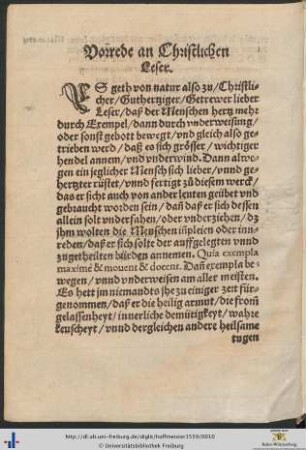 Vorrede an Christlichen
Leser.
ES geth von natur also zu/Christli-
cher/Gutherziger/Getrewer lieber
Leser/daß der Menschen hertz mehr
durch Exempel/dann durch vnderweisung/
oder sonst gebott bewegt/vnd gleich also ge-
trieben werd/daß es sich grösser/wichtiger
hendel annem/vnd vnderwind. Dann alwe-
gen ein jeglicher Mensch sich lieber/vnnd ge-
hertzter rüstet/vnnd fertigt zů disem werck/
das er sicht auch von ander leuten geübet vnd
gebraucht worden sein/dañ daß er sich dessen
allein solt vndersahen/oder vnderziehen/dz
ihm wolten die Menschen eiñpleien oder inn-
reden/daß er sich solte der auffgelegten vnnd
zugetheilten bürden annemen. Quia exempla
maximè & mouent & docent. Dañ exempla be-
wegen/vnnd vnderweisen am aller meisten.
Es hett jm niemandts she zu einiger zeit für-
genommen/daß er die heilig armut/die from̃
gelassenheyt/innerliche demütigkeyt/wahre
keuscheyt/vnnd dergleichen andere heilsame
tugen
http://dl.ub.uni-freiburg.de/diglit/hoffmeister1559/0010
© Universitätsbibliothek Freiburg
Baden-Württemberg